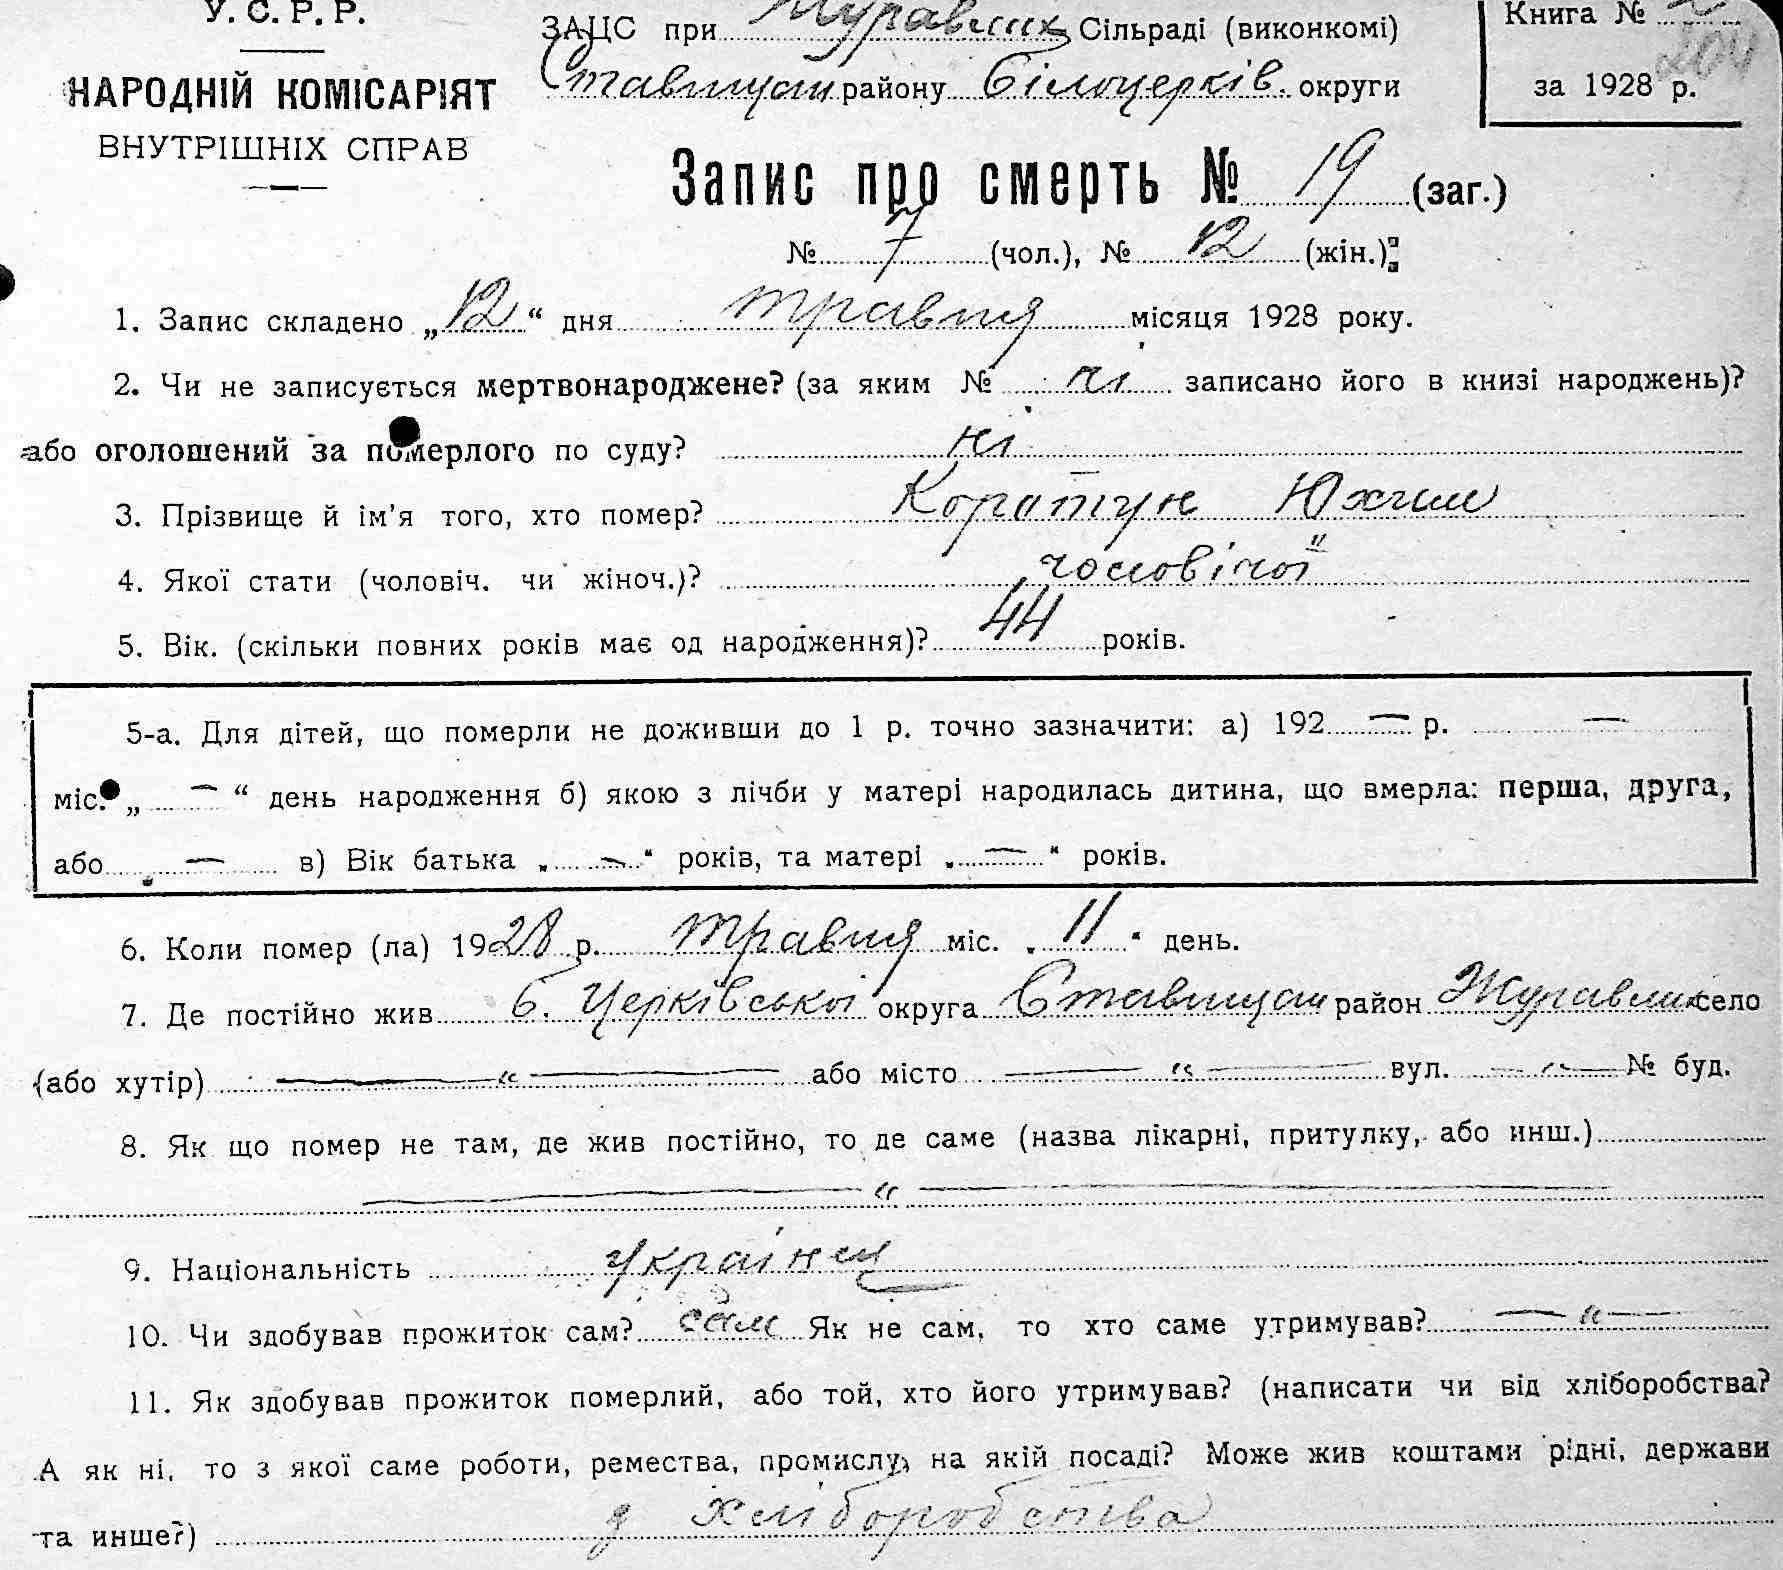 У.С.Р.Р.
НАРОДНІЙ КОМІСАРІЯТ
ВНУТРІШНІХ СПРАВ
ЗАЦС при Журавлих Сільраді (виконкомі)
Ставищан району Білоцерків. округи
Книга №
за 1928 р.
204
Запис про смерть № 19 (заг.)
№ 7 (чол.), № 12 (жін.)
1. Запис складено „12“ дня травня місяця 1928 року.
2. Чи не записується мертвонароджене? (за яким № ні записано його в книзі народжень)?
або оголошений за померлого по суду? ні
3. Прізвище й ім'я того, хто помер? Коротун Юхим
4. Якої стати (чоловіч. чи жіноч.)? чоловічої
5. Вік. (скільки повних років має од народження)? 44 років.
5-а. Для дітей, що померли не доживши до 1 р. точно зазначити: а) 192 — р. —
міс. „ — “ день народження б) якою з лічби у матері народилась дитина, що вмерла: перша, друга,
або — в) Вік батька „ — “ років, та матері „ — “ років.
6. Коли помер (ла) 1928 р. травня міс. „11“ день.
7. Де постійно жив Б. Церківської округа Ставищан район Журавлих село
(або хутір) — “ — або місто — “ — вул. — “ — № буд.
8. Як що помер не там, де жив постійно, то де саме (назва лікарні, притулку, або инш.)
— “ —
9. Національність українец
10. Чи здобував прожиток сам? сам Як не сам, то хто саме утримував? — “ —
11. Як здобував прожиток померлий, або той, хто його утримував? (написати чи від хліборобства?
А як ні, то з якої саме роботи, ремества, промислу, на якій посаді? Може жив коштами рідні, держави
та инше?) з хліборобства